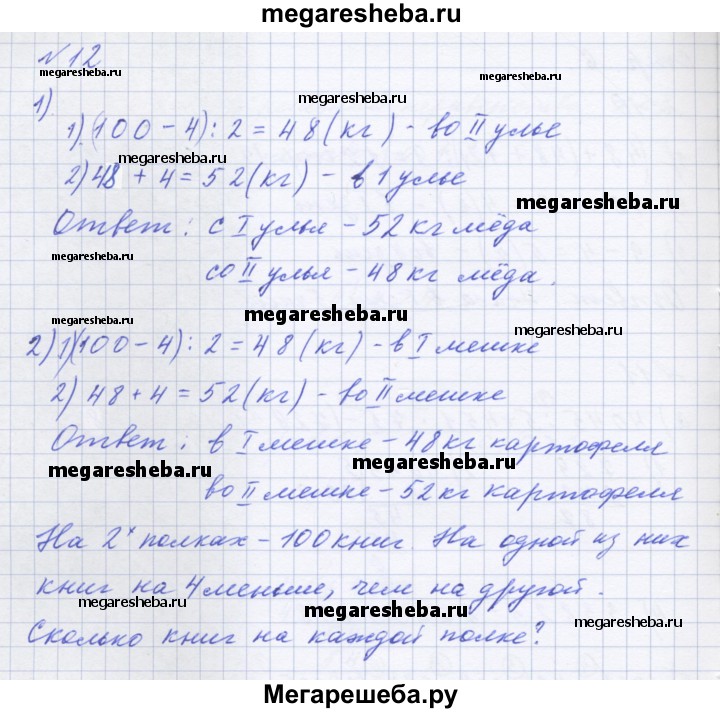 megaresheba.ru
№ 12
megaresheba.ru
megaresheba.ru
1)
1) (100 - 4) : 2 = 48 (кг) - во II улье
megaresheba.ru
2) 48 + 4 = 52 (кг) - в 1 улье
megaresheba.ru
Ответ: с I улья - 52 кг мёда
megaresheba.ru
со II улья - 48 кг мёда.
megaresheba.ru
megaresheba.ru
2) 1) (100 - 4) : 2 = 48 (кг) - в I мешке
2) 48 + 4 = 52 (кг) - во II мешке
Ответ: в I мешке - 48 кг картофеля
megaresheba.ru
megaresheba.ru
во II мешке - 52 кг картофеля
На 2х полках - 100 книг На одной из них
книг на 4 меньше, чем на другой.
megaresheba.ru
megaresheba.ru
megaresheba.ru
Сколько книг на каждой полке?
Мегарешеба.ру